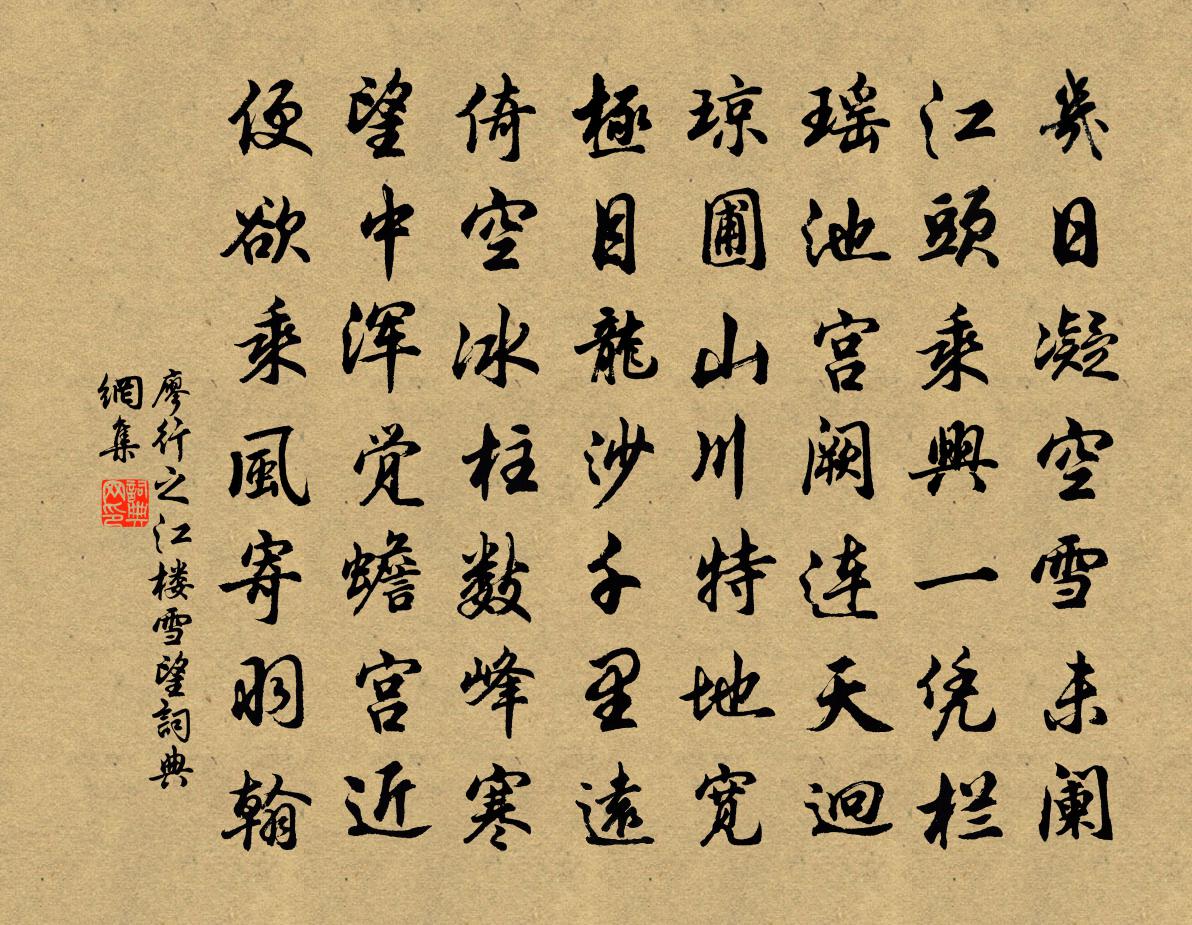 幾日凝空雪未阑
江頭乘興一凭栏
瑶池宫阙连天迥
琼圃山川特地宽
極目龍沙千里遠
倚空冰柱数峰寒
望中浑觉蟾宫近
便欲乘風寄羽翰
廖行之江楼雪望詞典
網集
詞典网印